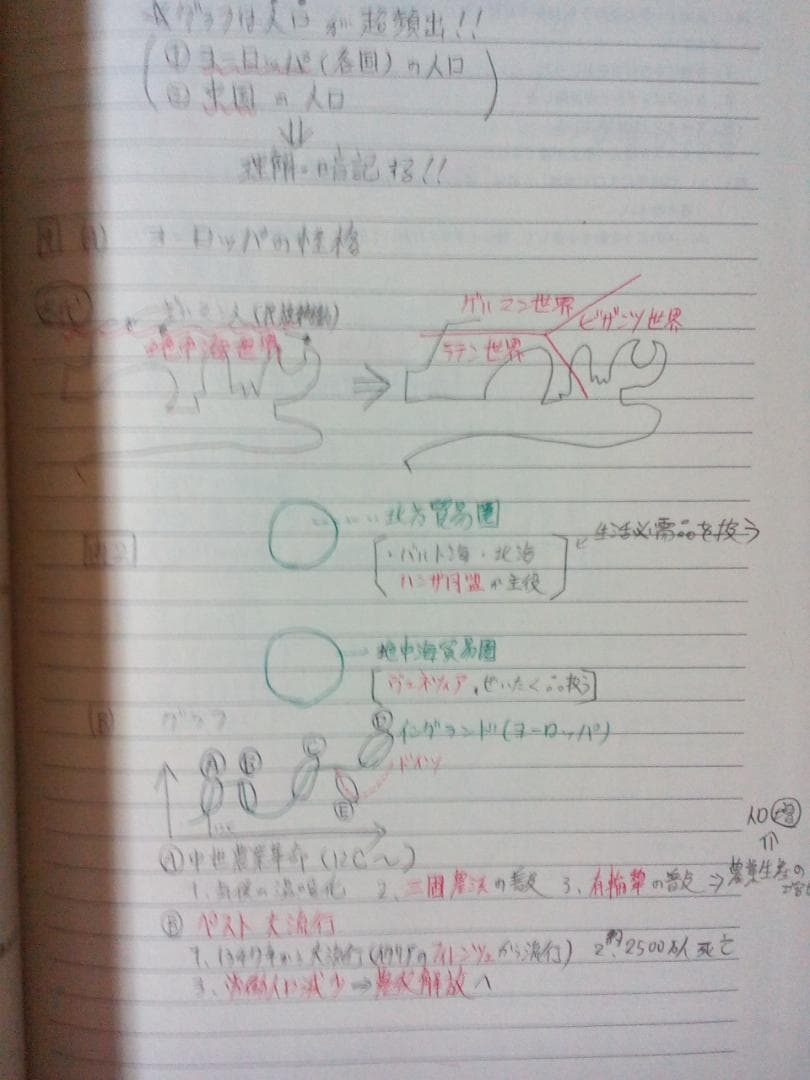 ☆グラフは人口が超頻出!!
① ヨーロッパ(各国)の人口
② 中国の人口
⇓
理解・暗記する!!
(A) ヨーロッパの性格
ゲルマン世界
ビザンツ世界
地中海世界 ⇒ ラテン世界
北方貿易圏
・バルト海・北海 ← 生活必需品を扱う
ハンザ同盟が主役
地中海貿易圏
ヴェネツィア,ぜいたく品扱う
(B) グラフ
Ⓓ イングランド(ヨーロッパ)
Ⓐ Ⓑ Ⓒ ドイツ
Ⓔ
人口増
⇑
Ⓐ 中世農業革命(12C〜)
1、気候の温暖化 2、三圃農法の普及 3、有輪犂の普及 ⇒ 農業生産の
Ⓑ ペスト大流行
から流行) 2、約2500万人死亡
3、労働人口減少 ⇒ 農奴解放へ